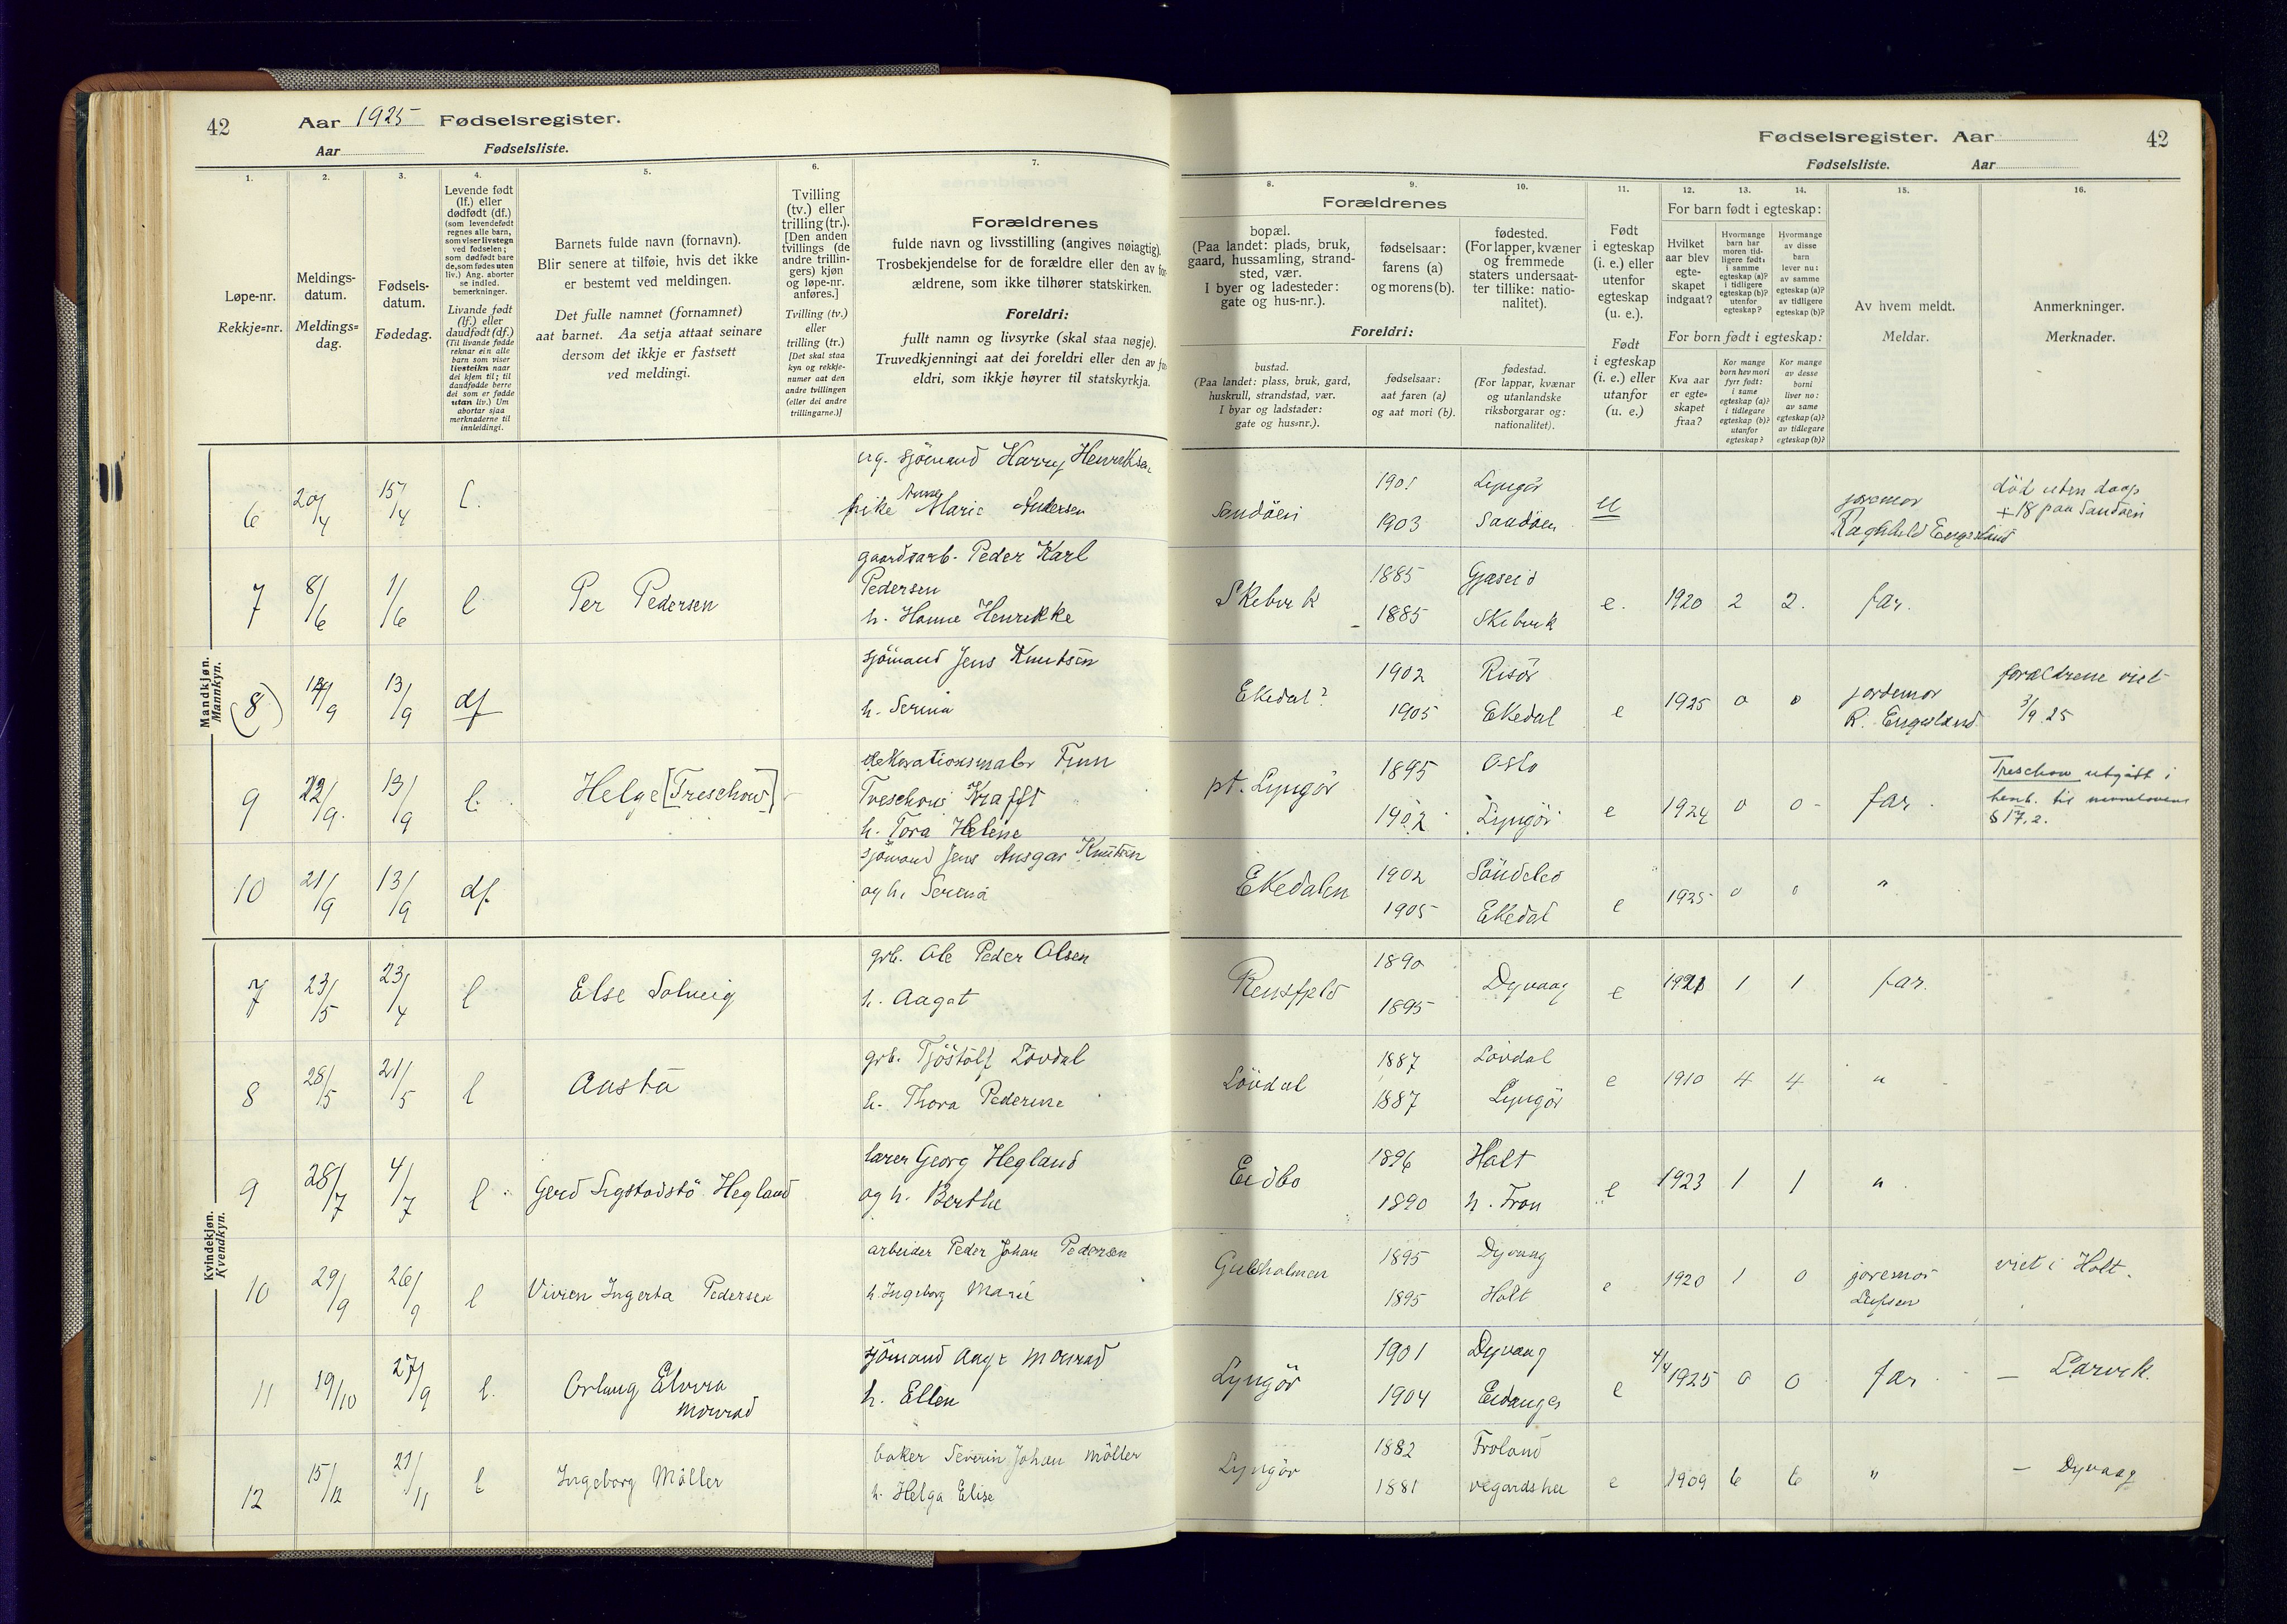 42
Aar 1925 Fødselsregister.
Aar Fødselsliste.
Fødselsregister. Aar
42
Fødselsliste. Aar
1.
2.
3.
4.
5.
6.
7.
8.
9.
10.
11.
12.
13.
14.
15.
16.
Løpe-nr.
Rekkje=nr.
Meldings-
datum.
Meldings=
dag.
Fødsels-
datum.
Fødedag.
Levende født
(lf.) eller
dødfødt (df.)
(som levendefødt
regnes alle barn,
som viser livstegn
ved fødselen;
som dødfødt bare
de, som fødes uten
liv.) Ang. aborter
se indled.
bemerkninger.
Livande født
(lf.) eller
daudfødt (df.)
(Til livande fødde
reknar ein alle
barn som viser
livsteikn naar
dei kjem til; til
daudfødde berre
dei som er fødde
utan liv.) Um
abortar sjaa
merknaderne til
innleidingi.
Barnets fulde navn (fornavn).
Blir senere at tilføie, hvis det ikke
er bestemt ved meldingen.
Det fulle namnet (fornamnet)
aat barnet. Aa setja attaat seinare
dersom det ikkje er fastsett
ved meldingi.
Tvilling
(tv.) eller
trilling (tr.).
[Den anden
tvillings (de
andre trillin-
gers) kjøn
og løpe-nr.
anføres.]
Tvilling (tv.)
eller
trilling (tr.)
[Det skal staa
kyn og rekkje-
numer aat den
andre tvillingen
(eller dei andre
trillingarne.)]
Forældrenes
fulde navn og livsstilling (angives nøiagtig).
Trosbekjendelse for de forældre eller den av for-
ældrene, som ikke tilhører statskirken.
Foreldri:
fullt namn og livsyrke (skal staa nøgje).
Truvedkjenningi aat dei foreldri eller den av for-
eldri, som ikkje høyrer til statskyrkja.
Forældrenes
bopæl.
(Paa landet: plads, bruk,
gaard, hussamling, strand-
sted, vær.
I byer og ladesteder:
gate og hus-nr.).
fødselsaar:
farens (a)
og morens (b).
fødested.
(For lapper, kvæner
og fremmede
staters undersaat-
ter tillike: natio-
nalitet).
Foreldri:
bustad.
(Paa landet: plass, bruk, gard,
huskrull, strandstad, vær.
I byar og ladstader:
gate og hus=nr.).
fødselsaar:
aat faren (a)
og aat mori (b).
fødestad.
(For lappar, kvænar
og utanlandske
riksborgarar og:
nationalitet).
Født
i egteskap
(i. e.) eller
utenfor
egteskap
(u. e.).
Født
i egteskap
(i. e.) eller
utanfor
(u. e.)
For barn født i egteskap:
Hvilket
aar blev
egte-
skapet
indgaat?
Hvormange
barn har
moren tid-
ligere født:
i samme
egteskap (a)?
i tidligere
egteskap (b)?
utenfor
egteskap?
Hvormange
av disse
barn
lever nu:
av samme
egteskap (a)?
av tidligere
egteskap (b)?
For born født i egteskap:
Kva aar
er egte=
skapet
fraa?
Kor mange
born hev mori
fyrr født:
i same
egteskap (a)?
i tidlegare
egteskap (b)?
utanfor
egteskap?
Kor mange
av desse
borni
liver no:
av same
egteskap (a)?
av tidlegare
egteskap (b)?
Av hvem meldt.
Meldar.
Anmerkninger.
Merknader.
Mandkjøn.
Mannkyn.
6 20/4 15/4 l.
ug. sjömand Harry Henriksen
pike Anna Marie Andersen
Sandöen 1901 Lyngör
1903 Sandöen u
jordmor
Raghhild Engesland
död uten daap
+ 18 paa Sandöen
7 8/6 1/6 l Per Pedersen
gaardsarb. Peder Karl
Pedersen
h. Hanne Henrikke
Skibvik 1885 Gjæseid
1885 Skibvik e. 1920 2 2. far.
(8) 9 13/9 df
sjömand Jens Knutsen
h. Serina
Ekedal? 1902 Risör
1905 Ekedal e 1925 0 0
jordemor
R. Engesland
forældrene viet
3/9 25
9 22/9. 13/9 l. Helge [Treschow]
dekorationsmaler Finn
Treschow Krafft
h. Tora Helene
pt. Lyngör 1895 Oslo
1902 Lyngör e 1924 0 0 far.
Treschow utgått i
henh. til navnelovens
§ 17, 2.
10 21/9 13/9 df.
sjömand Jens Ansgar Knutsen
og h. Serina
Ekedalen 1902 Söndeled
1905 Ekedal e 1925 0 0 "
Kvindekjøn.
Kvendkyn.
7 23/5 23/4 l Else Solveig
grb. Ole Peder Olsen
h. Aagot
1890
1895 Dyvaag e 1921 1 1 far.
8 28/5 21/5 l Aasta
grb. Tjöstolf Lövdal
h. Thora Pederine
Lövdal 1887 Lövdal
1887 Lyngör e 1910 4 4 "
9 28/7 4/7 l Gerd Sigstadstö Hegland
lærer Georg Hegland
og h. Berthe
Eidbo 1896 Holt
1890 n. Fron e 1923 1 1 "
10 29/9 26/9 l Vivien Ingerta Pedersen
arbeider Peder Johan Pedersen
h. Ingeborg Marie
Gulsholmen 1895 Dyvaag
1895 Holt e 1920 1 0
jordmor
viet i Holt.
11 19/10 27/9 l. Orlaug Elvira
Monrad
sjömand Aage Monrad
h. Ellen
Lyngör 1901 Dyvaag
1904 Eidanger e 4/4 1925 0 0 far. — Larvik.
12 15/12 29/11 l Ingeborg Möller
baker Severin Johan Möller
h. Helga Elise
Lyngör 1882 Froland
1881 Vegardshei e 1909 6 6 " — Dyvaag